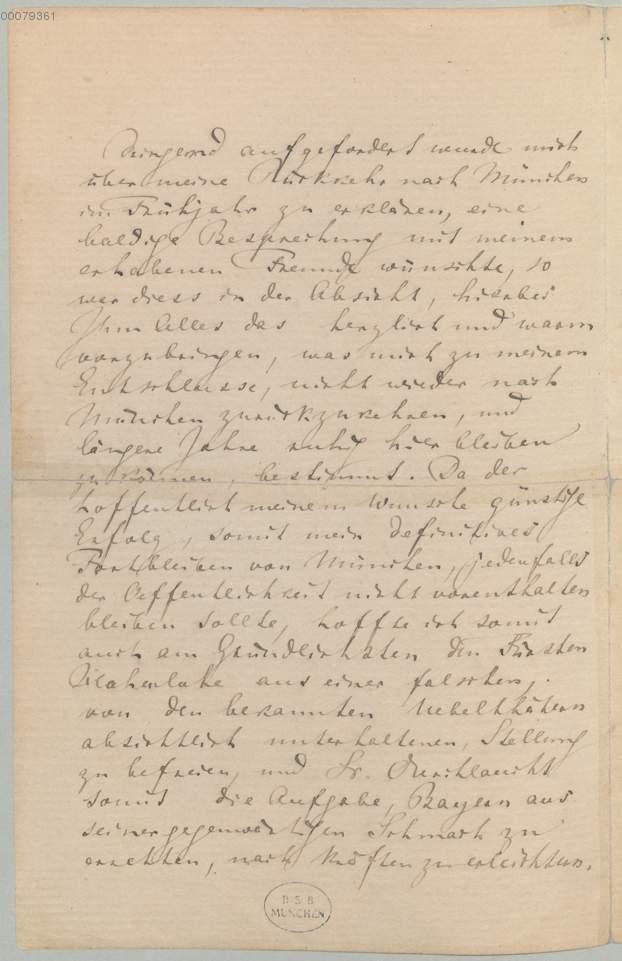 00079361
dringend aufgefordert wurde mich
über meine Rückkehr nach München
im Frühjahr zu erklären, eine
baldige Besprechung mit meinem
erhabenen Freunde wünschte, so
war diess in der Absicht, hierbei
Ihm Alles das herzlich und warm
vorzubringen, was mich zu meinem
Entschlusse, nicht wieder nach
München zurückzukehren, und
längere Jahre ruhig hier bleiben
zu können, bestimmt. Da der
hoffentlich meinem Wunsche günstige
Erfolg, somit mein definitives
Fortbleiben von München, jedenfalls
der Oeffentlichkeit nicht vorenthalten
bleiben sollte, hoffte ich somit
auch am Gründlichsten den Fürsten
Hohenlohe aus einer falschen,
von den bekannten Uebelthätern
absichtlich unterhaltenen, Stellung
zu befreien, und Sr. Durchlaucht
somit die Aufgabe, Bayern aus
seiner gegenwärtigen Schmach zu
erretten, nach Kräften zu erleichtern.
BSB
MÜNCHEN